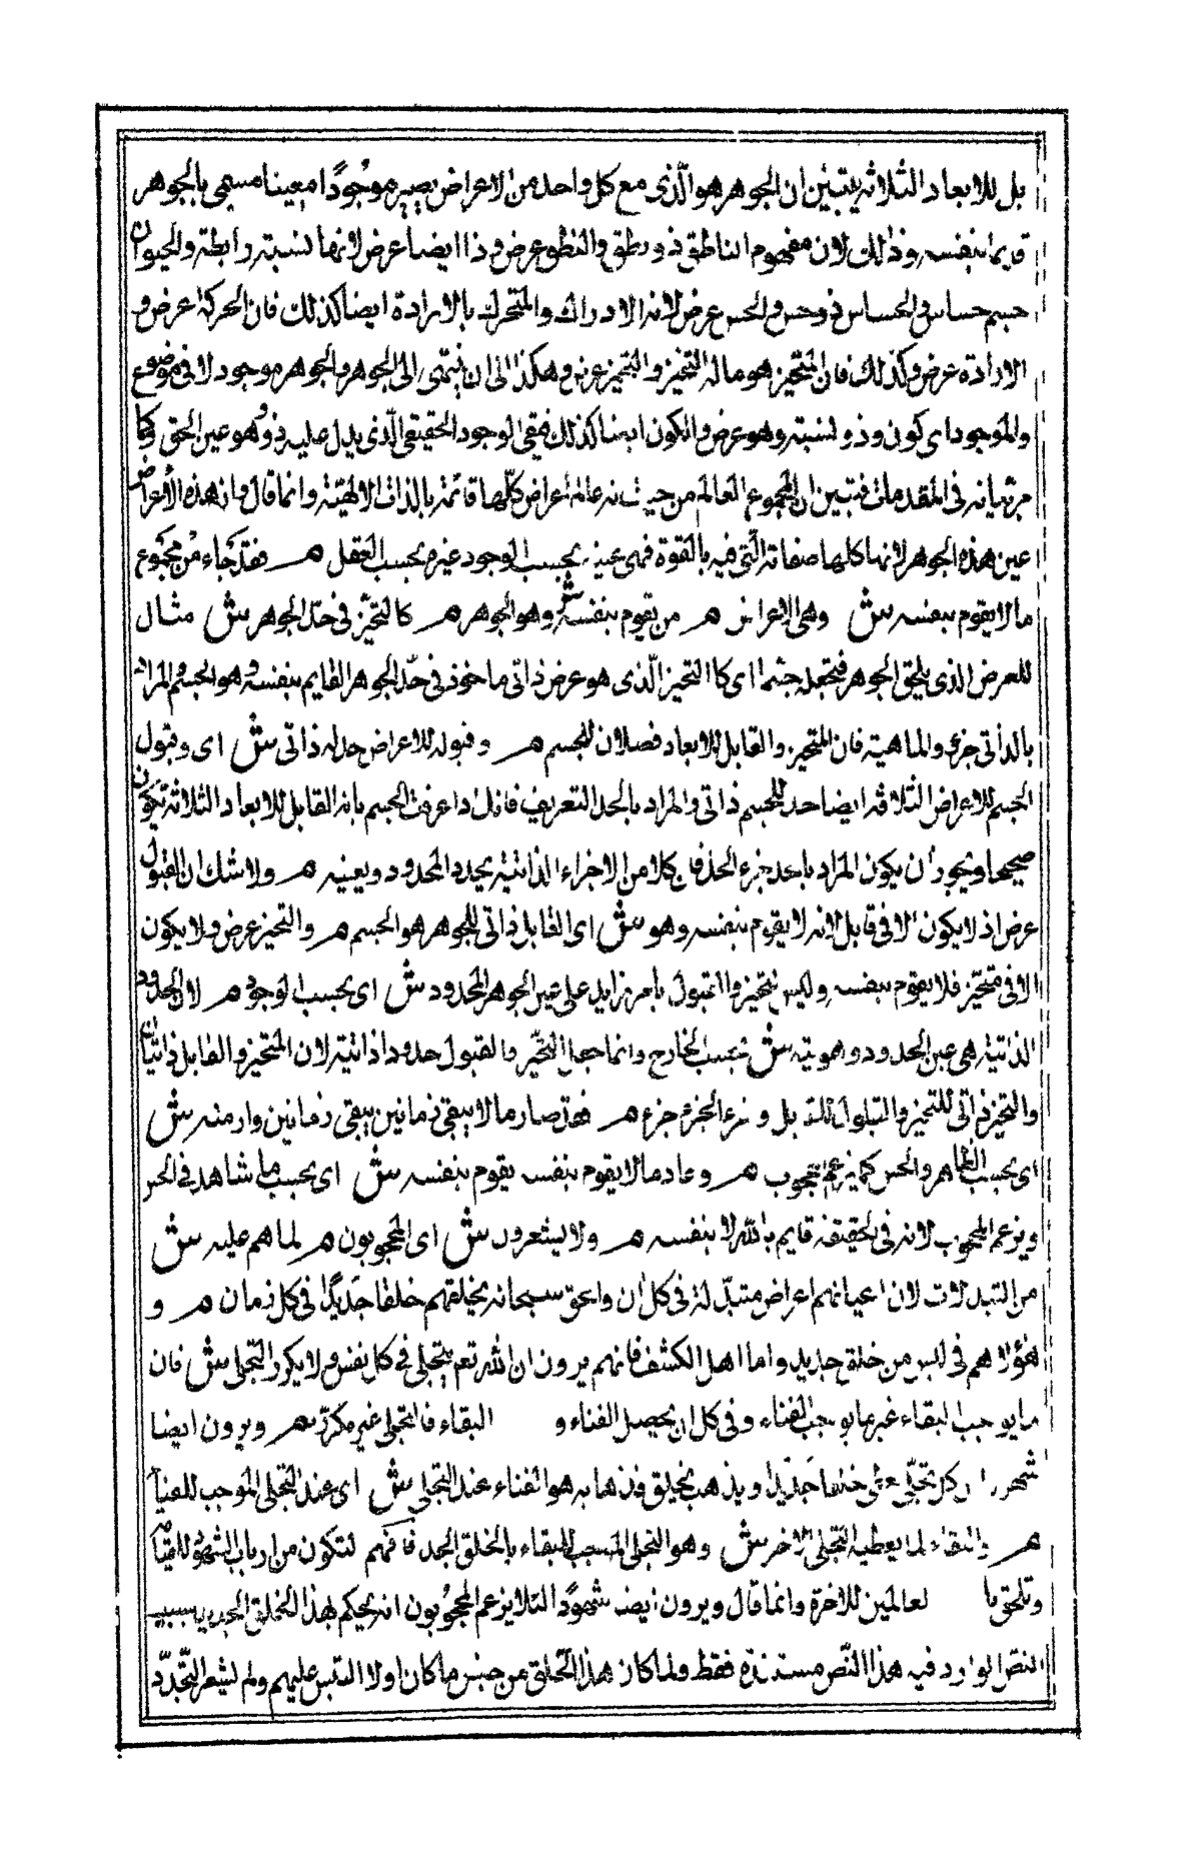 بل للابعاد الثلاثة يتبين ان الجوهر هو الّذى مع كل واحد من الاعراض يصير موجودًا معينا مسمى بالجوهر
قايما بنفسه وذالك لان مفهوم الناطق ذو نطق والنطق عرض وذا ايضا عرض لانها نسبته رابطة والحيوان
جسم حساس والحساس ذو حس والحس عرض لانه الادراك والمتحرك بالارادة ايضا كذلك فان الحركة عرض و
الارادة عرض وكذلك فان المتحيز هو ماله التحيز والتحيز عرض وهكذا الى ان ينتهى الى الجوهر والجوهر موجود لا فى موضوع
والموجود اى كون وذو نسبته وهو عرض والكون ايضا كذلك فبقى الوجود الحقيقى الّذى يدل عليه ذو وهو عين الحق كما
مر بيانه فى المقدمات فتبين ان المجموع العالم من حيث انه عالم اعراض كلّها قائمة بالذات الالهيّة وانما قال وان هذه الاعراض
عين هذه الجوهر لانها كلها صفاته الّتى فيه بالقوة فهى عينه بحسب الوجود غيره بحسب العقل هر فقد جَاء من مجموع
مالا يقوم بنفسه ش وهى الاعراض هر من يقوم بنفسه ش وهو الجوهر هر كالتحيّز فى حدّ الجوهر ش مثال
للعرض الذى يلحق الجوهر فتجعله جسما اى كا التحيز الّذى هو عرض ذاتى ماخوذ فى حدّ الجوهر القايم بنفسه وهو الجسم والمراد
بالذاتى جزء والماهية فان المتحيز والقابل للابعاد فصلان للجسم هر وقبوله للاعراض حد له ذاتى ش اى وقبول
الجسم للاعراض الثلاثة ايضا حد للجسم ذاتى والمراد بالحد التعريف فانك اذا عرفت الجسم بانه القابل للابعاد الثلاثة يكون
صحيحا ويجوز ان يكون المراد باحد جزء الحد فان كلا من الاجزاء الذاتية يحدد المحدود ويعينه هر ولا شك ان القبول
عرض اذ لا يكون الا فى قابل لانه لا يقوم بنفسه وهو ش اى القابل ذاتى للجوهر هو الجسم هر والتحيز عرض ولا يكون
الا فى متحيّز فلا يقوم بنفسه وليس التحيز والقبول بامر زايد على عين الجوهر المحدود ش اى بحسب الوجود هر لان الحدود
الذاتية هى عين المحدود وهويته ش بحسب الخارج وانما جعل التحيّر والقبول حدودا ذاتية لان المتحيز والقابل ذاتيان
والتحيز ذاتى للتحيز والقبول للقابل وجزء الجزء جزء هر فقد صار مالا يبقى زمانين يبقى زمانين وازمنه ش
اى بحسب الظاهر والحس كما يزعم المحجوب هر وعاد مالا يقوم بنفسه يقوم بنفسه ش اى بحسب ما شاهد فى الحس
ويزعم المحجوب لانه فى الحقيقة قايم بالله لا بنفسه هر ولا يشعرون ش اى المحجوبون هر لما هم عليه ش
من التبدلات لان اعيانهم اعراض متبدّلة فى كل ان والحق سبحانه يخلقهم خلقا جَديدًا فى كل زمان هر و
هؤلاء هم فى لبس من خلق جديد واما اهل الكشف فانهم يرون ان الله تعم يتجلى فى كل نفس ولا يكرر التجلى ش فان
ما يوجب البقاء غير ما يوجب الفناء وفى كل ان يحصل الفناء و البقاء فالتجلى غير مكرّر هر ويرون ايضا
شهودا ان كل تجلّى يعطى خلقا جَديدًا ويذهب بخلق فذهابه هو الفناء عند التجلى ش اى عند التجلى الموجب للفناء
هر والبقاء لما يعطيه التجلى الاخر ش وهو التجلى الموجب للبقاء بالخلق الجديد فافهم لتكون من ارباب الشهود للقيامة
وتلحق با لعالمين للاخرة وانما قال ويرون ايضا شهودًا لئلا يزعم المحجوبون انه يحكم بهذا الخلق الجديد بسبب
النص الوارد فيه هذا النّص مستنده فقط ولما كان هذا الخلق من جنس ما كان اولا التبس عليهم ولم يشعر التجدّد